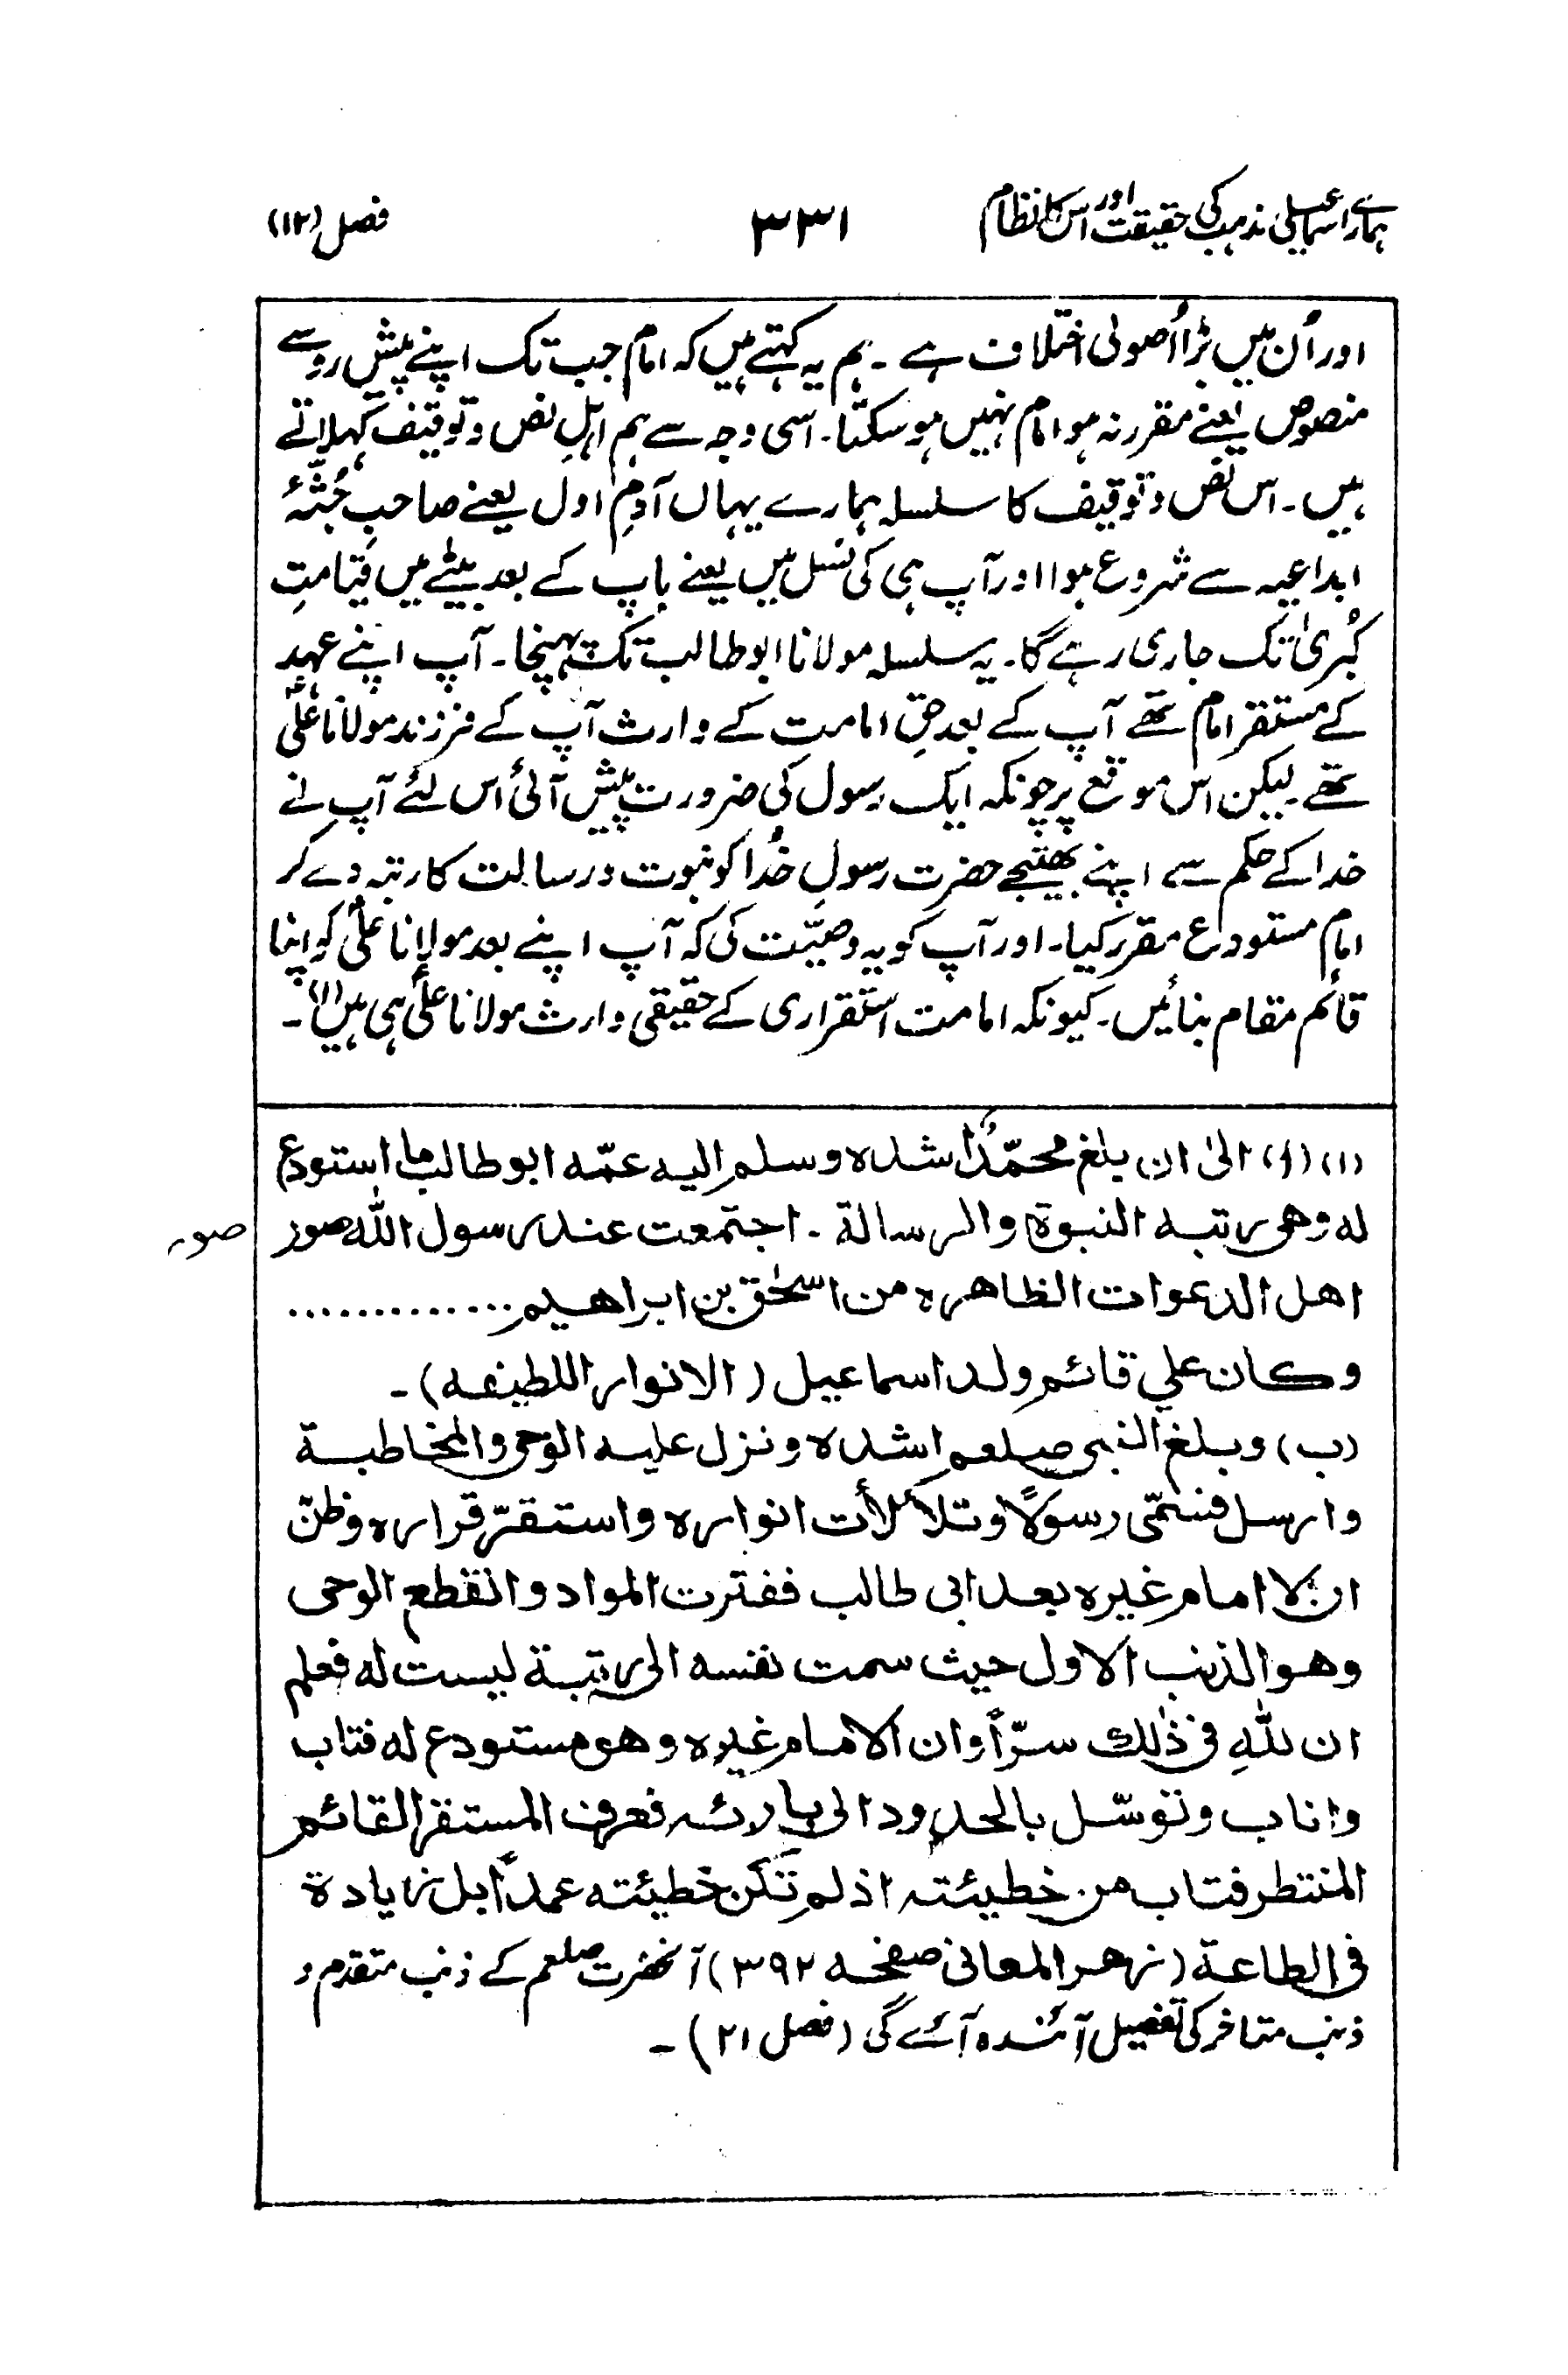 ہمارے اسماعیلی مذہب کی حقیقت اور اس کا نظام ۳۳۱ فصل (۱۲)
اور اُن میں بڑا اُصولی اختلاف ہے ۔ ہم یہ کہتے ہیں کہ امام جب تک اپنے پیش رو سے
منصوص یعنے مقرر نہ ہو امام نہیں ہو سکتا۔ اسی وجہ سے ہم اہلِ نص و توقیف کہلاتے
ہیں۔ اس نص و توقیف کا سلسلہ ہمارے یہاں آدمِ اول یعنے صاحبِ جُثّۂ
ابداعیہ سے شروع ہوا اور آپ ہی کی نسل میں یعنے باپ کے بعد بیٹے میں قیامتِ
کُبریٰ تک جاری رہے گا۔ یہ سلسلہ مولانا ابو طالب تک پہنچا۔ آپ اپنے عہد
کے مستقر امام تھے آپ کے بعد حقِ امامت کے وارث آپ کے فرزند مولانا علیؑ
تھے لیکن اس موقع پر چونکہ ایک رسول کی ضرورت پیش آئی اس لئے آپ نے
خدا کے حکم سے اپنے بھتیجے حضرت رسولِ خُدا کو نبوت و رسالت کا رتبہ دے کر
امامِ مستودع مقرر کیا۔ اور آپ کو یہ وصیّت کی کہ آپ اپنے بعد مولانا علیؑ کو اپنا
قائم مقام بنائیں۔ کیونکہ امامت استقراری کے حقیقی وارث مولانا علیؑ ہی ہیں(۱)۔
(۱) (ا) الیٰ ان بلغ محمّدٌ اشدہ وسلم الیہ عمّہ ابو طالب ما استودع
لہ وھی رتبہ النبوۃ والرسالۃ ۔ اجتمعت عند رسول اللہ صور
صور
اھل الدعوات الظاھرہ من اسحٰق بن ابراھیم .............
وکان علي قائم ولد اسماعیل (الانوار اللطیفہ)۔
(ب) وبلغ النبی صلعم اشدہ ونزل علیہ الوحی والمخاطبۃ
وارسل فسمّی رسولاً وتلألأت انوارہ واستقرّ قرارہ وظنّ
ان لا امام غیرہ بعد ابی طالب ففترت المواد وانقطع الوحی
وھو الذنب الاول حیث سمت نفسہ الی رتبۃ لیست لہ فعلم
ان للّٰہِ فی ذٰلک سرّاً وان الامام غیرہ وھو مستودع لہ فتاب
واناب وتوسّل بالحدود الی بارئہ فعرف المستقر القائم
المنتظر فتاب من خطیئتہ اذ لم تکن خطیئتہ عمداً بل زیادۃ
فی الطاعۃ (زھر المعانی صفحہ ۳۹۲) آنحضرت صلعم کے ذنب متقدم و
ذنب متاخر کی تفصیل آئندہ آئے گی (فصل ۲۱)۔